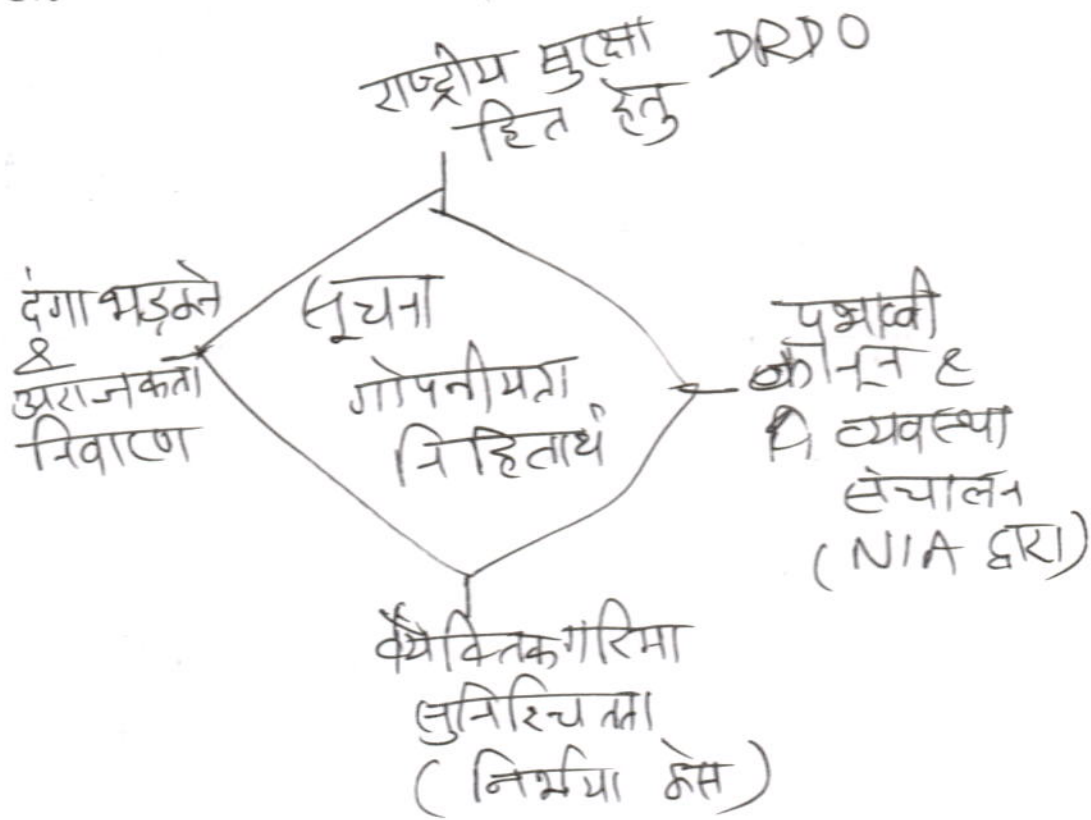 राष्ट्रीय सुरक्षा DRDO
हित हेतु
दंगा भड़कने
&
अराजकता
निवारण
सूचना
गोपनीयता
निहितार्थ
प्रभावी
कानून &
व्यवस्था
संचालन
(NIA द्वारा)
वैयक्तिक गरिमा
सुनिश्चितता
(निर्भया केस)